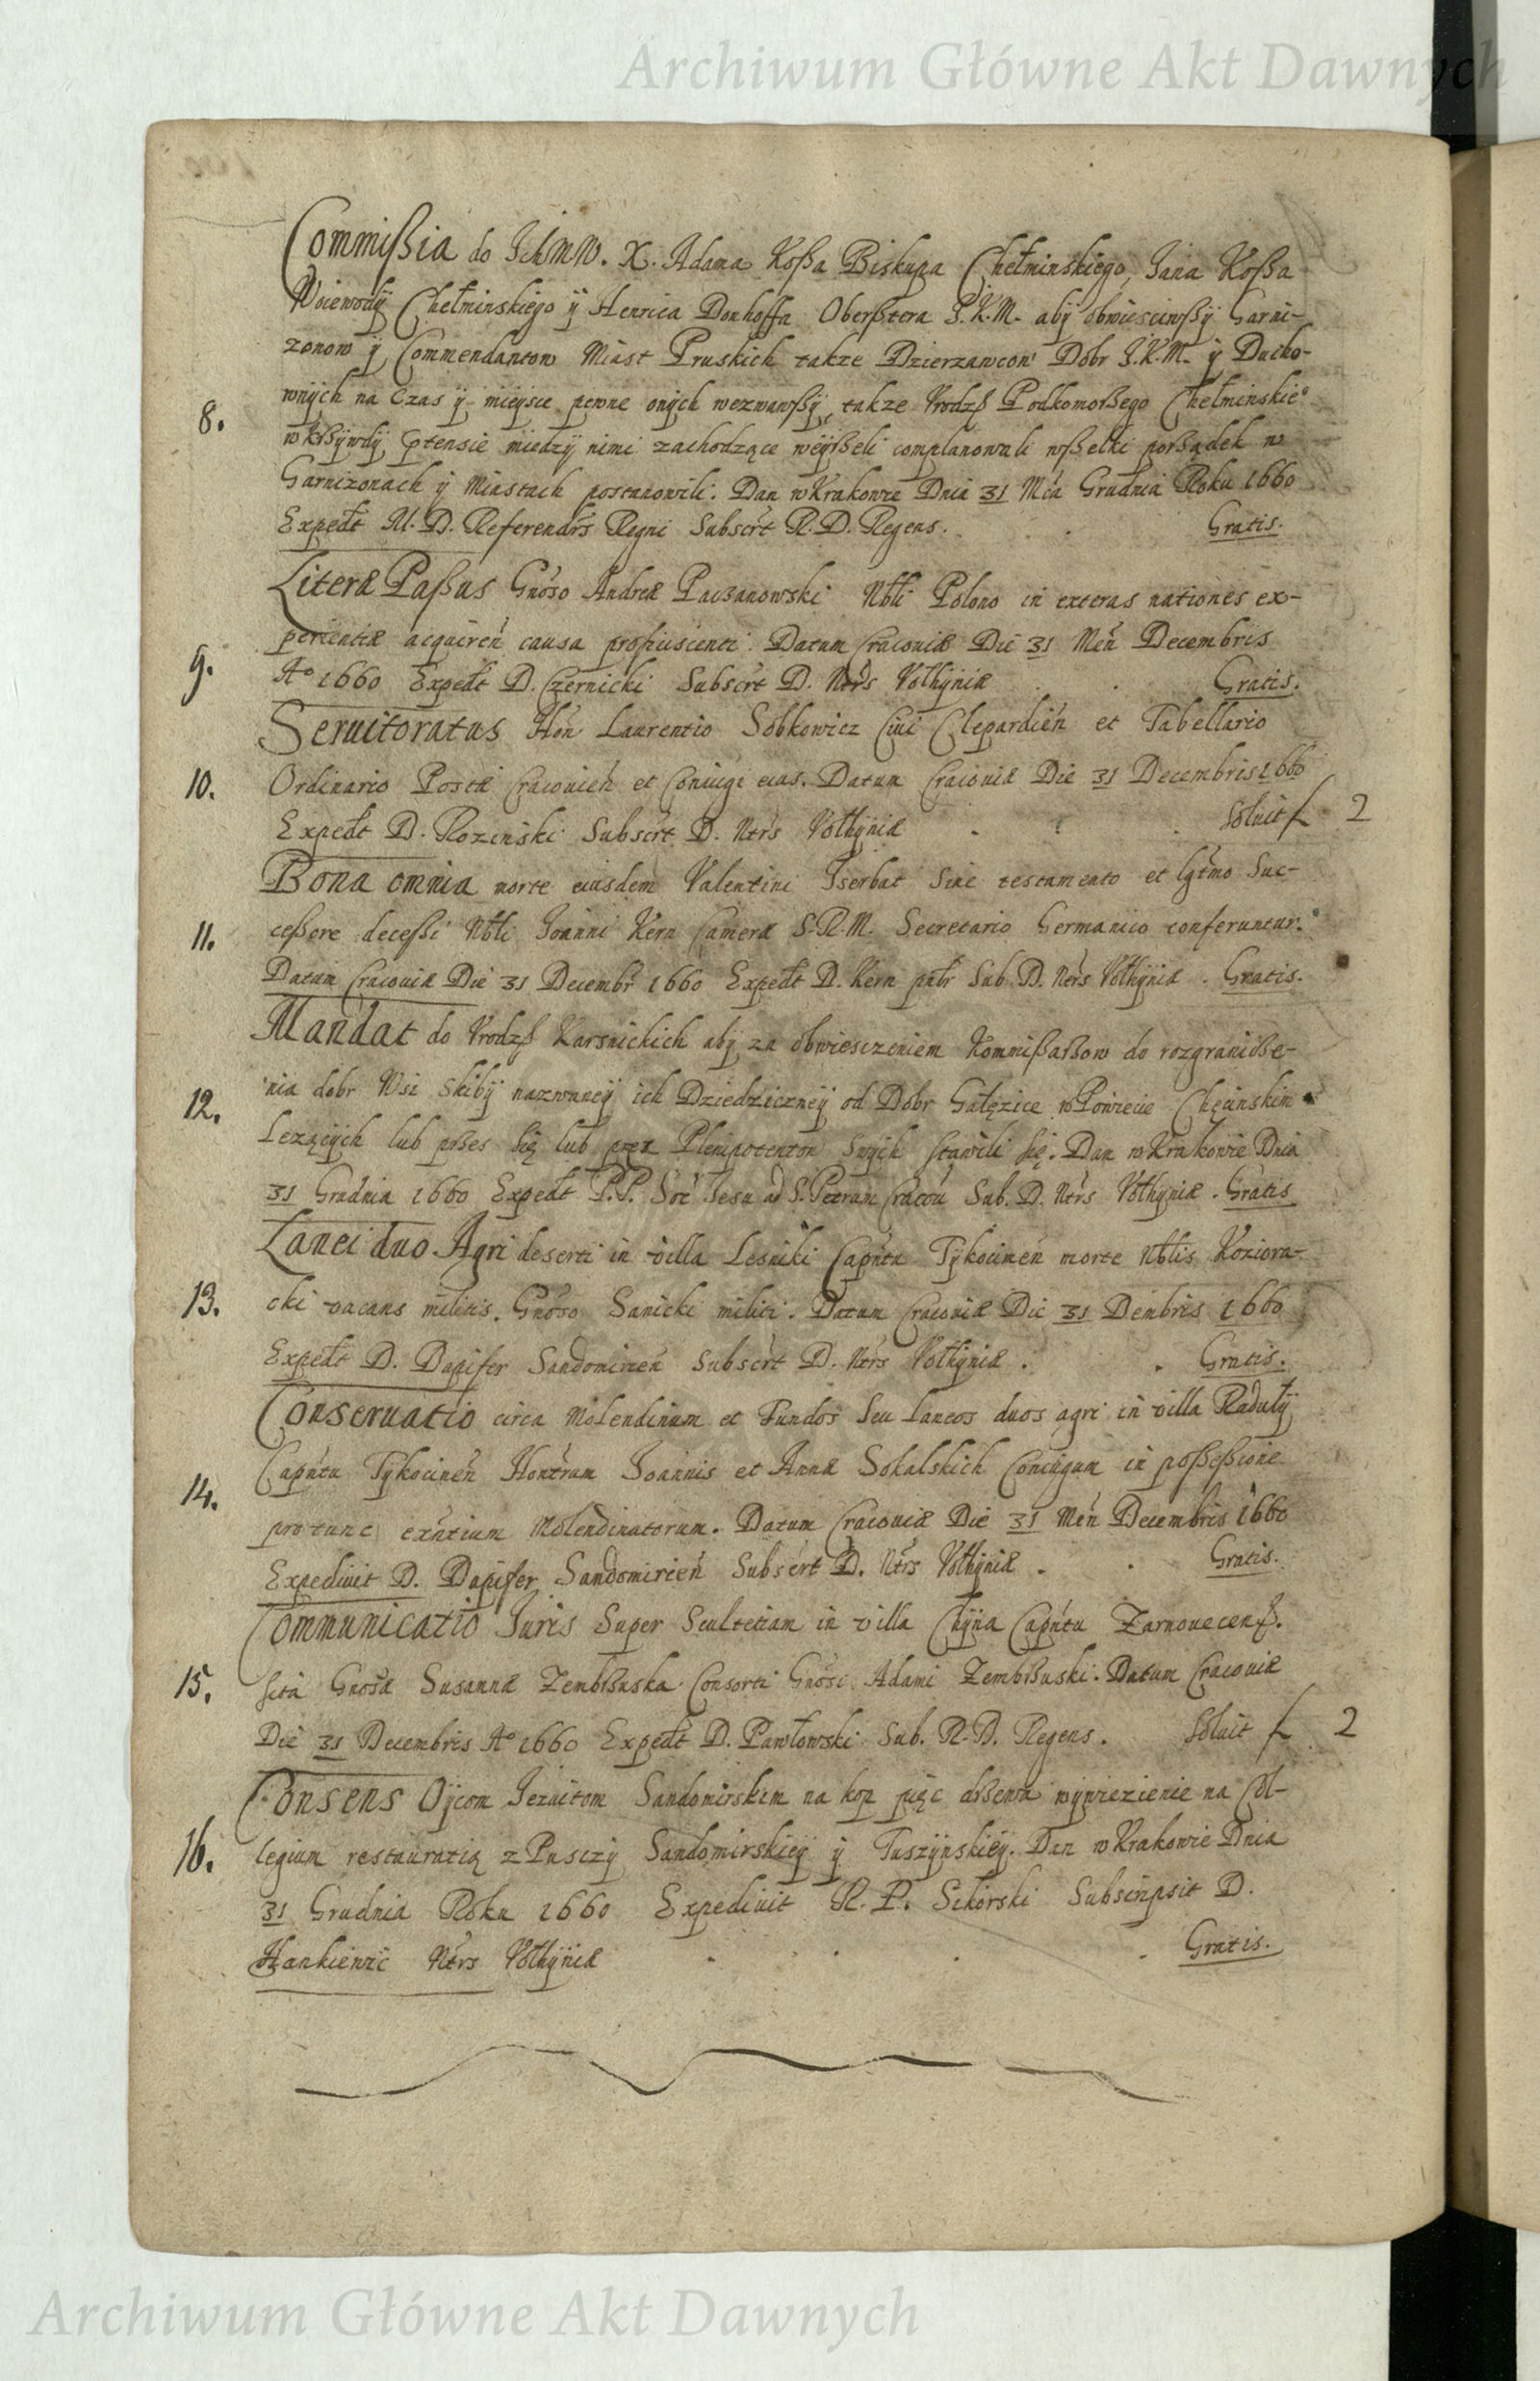 Archiwum Główne Akt Dawnych
Commißia do JchMW. X. Adama Koßa Biskupa Chełminskiego, Jana Koßa
Woiewody Chełminskiego ÿ Henrica Donhoffa Oberßtera J.K.M. abÿ obwiesciwßÿ Garni-
zonow ÿ Commendantow Miast Pruskich takze Dzierzawcow Dobr J.K.M. ÿ Ducho-
wnÿch na Czas ÿ mieÿsce pewne onÿch wezwawßÿ, takze Vrodzß Podkomorßego Chełminskieº
8. wkrßÿwdÿ ptensie miedzÿ nimi zachodzące weÿrßeli complanowali wßelki porßądek w
Garnizonach ÿ Miastach postanowili. Dan w Krakowie Dnia 31 Mca Grudnia Roku 1660
Expedt M. D. Referendrs Regni Subscrt R. D. Regens. Gratis.
Literæ Paßus Gnoso Andreæ Paczanowski Nbli Polono in exteras nationes ex-
perientiæ acquiren causa proficiscenti. Datum Cracoviæ Die 31 Men Decembris
9. Aº 1660 Expedt D. Czernicki Subscrt D. Ntrs Volhÿniæ Gratis.
Seruitoratus Hon Laurentio Sobkowicz Ciui Clepardien et Tabellario
10. Ordinario Postæ Cracouien et Coniugi eius. Datum Cracouiæ Die 31 Decembris 1660
Expedt D. Rozinski Subscrt D. Ntrs Volhÿniæ Soluit f 2
Bona omnia morte eiusdem Valentini Iserbat sine testamento et lgtmo Suc-
11. ceßore deceßi Nbli Joanni Kern Cameræ S.R.M. Secretario Germanico conferuntur.
Datum Cracouiæ Die 31 Decembr 1660 Expedt D. Kern Sub. D. Ntrs Volhÿniæ. Gratis.
Mandat do Vrodzß Karsnickich abÿ za obwiesczeniem Kommißarßow do rozgraniczße-
12. nia dobr Wsi Skibÿ nazwaneÿ ich Dziedziczneÿ od Dobr Gałęzice w Powiecie Chęcinskim
Lezącÿch lub prßes się lub przez Plenipotentow Swÿch stawili się. Dan w Krakowie Dnia
31 Grudnia 1660 Expedt P.P. Soc Jesu ad S. Petrum Cracou Sub. D. Ntrs Volhyniæ. Gratis
Lanei duo Agri deserti in villa Lesniki Capntu Tÿkocinen morte Nblis Koziora-
13. cki vacans militis. Gnoso Sanicki militi. Datum Cracouiæ Die 31 Dembris 1660
Expedt D. Dapifer Sandomirien Subscrt D. Ntrs Volhÿniæ. Gratis.
Conseruatio circa Molendinum et Fundos Seu Laneos duos agri in villa Radulÿ
Capntu Tÿkocinen Hontrum Joannis et Annæ Sokalskich Coniugum in poßeßione
14. pro tunc exntium Molendinatorum. Datum Cracouiæ Die 31 Men Decembris 1660
Expediuit D. Dapifer Sandomirien Subscrt D. Ntrs Volhÿniæ. Gratis.
Communicatio Juris Super Scultetiam in villa Chÿna Capntu Zarnouecenß.
15. sita Gnosæ Susannæ Zembrßuska Consorti Gnosi Adami Zembrßuski. Datum Cracouiæ
Die 31 Decembris Aº 1660 Expedt D. Pawłowski Sub. R. D. Regens. Soluit f 2
Consens Oÿcom Jezuitom Sandomirskim na kop pięc drßewa wÿwiezienie na Col-
16. legium restauratią z Pusczÿ Sandomirskieÿ ÿ Tuszÿnskieÿ. Dan w Krakowie Dnia
31 Grudnia Roku 1660 Expediuit R. P. Sikorski Subscripsit D.
Hankiewic Ntrs Volhÿniæ Gratis.
Archiwum Główne Akt Dawnych